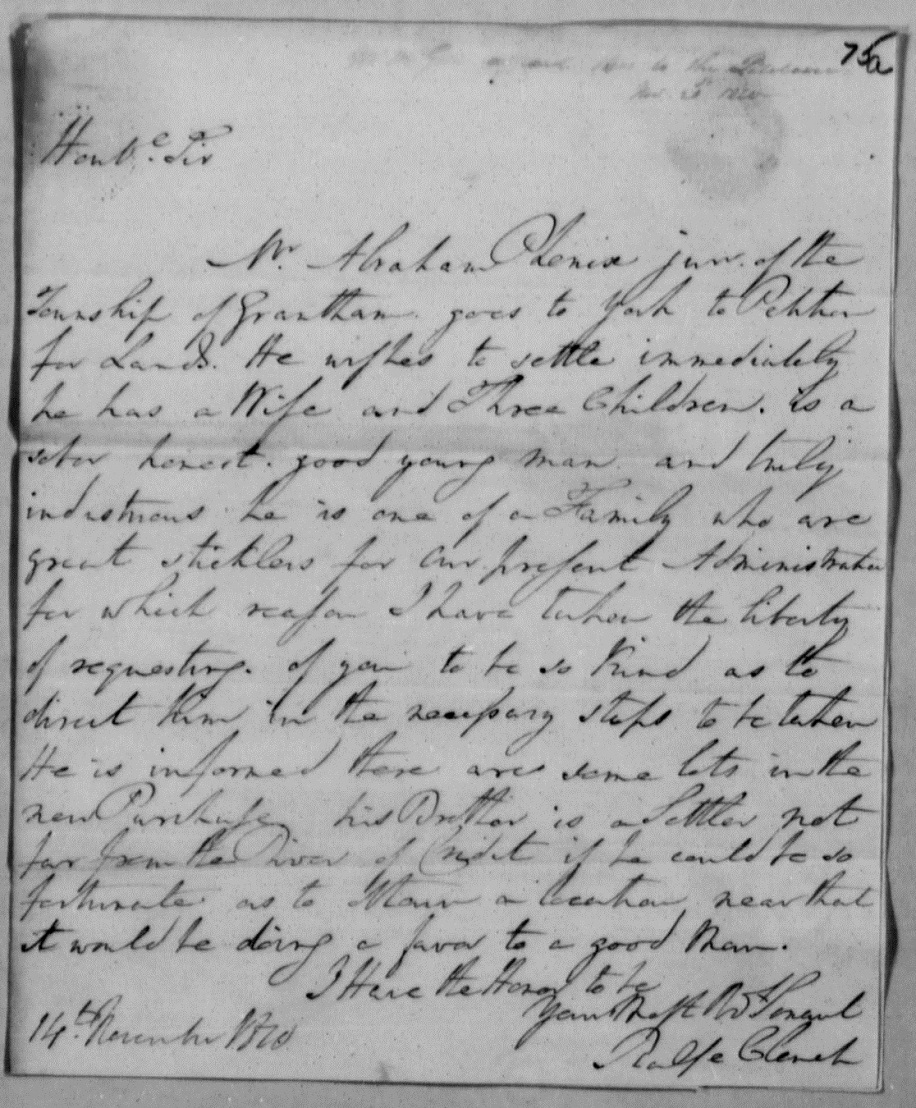 75a
Honble. Sir
Mr. Abraham Phenix junr. of the
Township of Grantham goes to York to Petition
for Lands. He wishes to settle immediately
he has a Wife and Three Children. is a
sober honest. good young man and truly
industrious he is one of a Family who are
great sticklers for our present Administration
for which reason I have taken the liberty
of requesting. of you to be so kind as to
direct him in the necessary steps to be taken
He is informed there are some lots in the
new Purchase his Brother is a Settler not
far from the River of Credit if he could be so
fortunate as to Attain a location near that
it would be doing a favor to a good Man.
I Have the Honor to be
Your Most Obt Servant
Ralfe Clench
14th November 1820